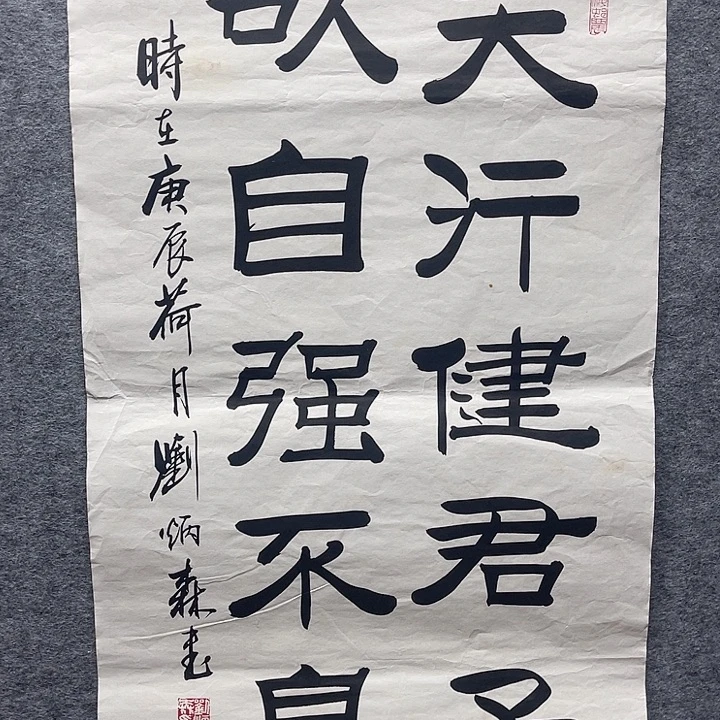 天行健君子
以自强不息
時在庚辰荷月劉炳森書